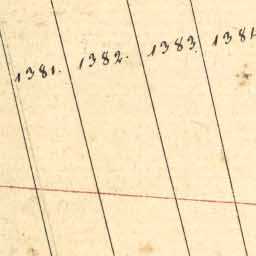 1381. 1382. 1383.